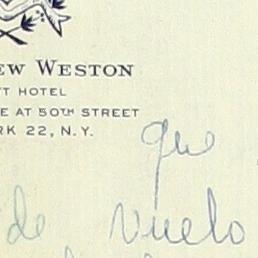 EW WESTON
T HOTEL
E AT 50TH STREET
RK 22, N.Y.
que
de vuelo